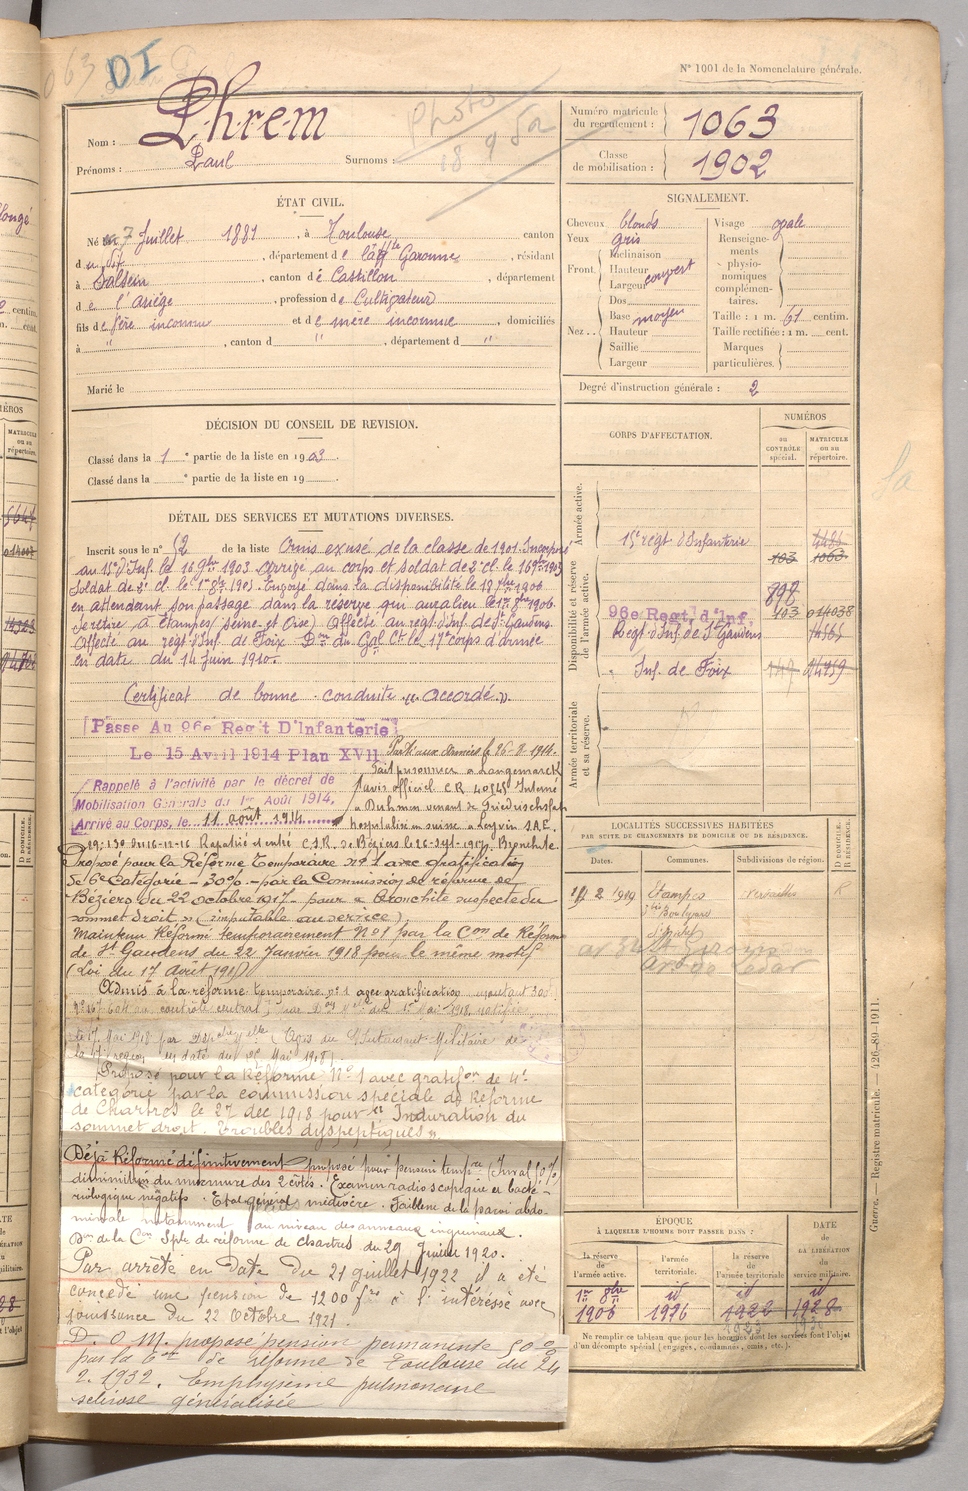 063
DI
N° 1001 de la Nomenclature générale.
Nom : Phrem
Prénoms : Paul
Surnoms :
Photo
18 9 52
Numéro matricule du recrutement : 1063
Classe de mobilisation : 1902
ÉTAT CIVIL.
Né le 7 Juillet 1881, à Toulouse, canton
du dit, département de la Hte Garonne, résidant
à Salsein, canton de Castillon, département
de l'Ariège, profession de Cultivateur
fils de père inconnu et de mère inconnue, domiciliés
à " , canton d " , département d "
Marié le
SIGNALEMENT.
Cheveux blonds
Yeux gris
Front. Inclinaison
Hauteur
Largeur
couvert
Nez.. Dos
Base moyen
Hauteur
Saillie
Largeur
Visage ovale
Renseignements physionomiques complémentaires.
Taille : 1 m. 61 centim.
Taille rectifiée : 1 m. cent.
Marques particulières.
Degré d'instruction générale : 2
DÉCISION DU CONSEIL DE REVISION.
Classé dans la 1e partie de la liste en 1903.
Classé dans la e partie de la liste en 19 .
DÉTAIL DES SERVICES ET MUTATIONS DIVERSES.
Inscrit sous le n° 12 de la liste Omis excusé de la classe de 1901. Incorporé
au 15e d'Inf. le 16 9bre 1903. Arrivé au corps et soldat de 2e cl. le 16 9bre 1903
Soldat de 1e cl. le 1er 8bre 1905. Envoyé dans la disponibilité le 18 7bre 1906
en attendant son passage dans la réserve qui aura lieu le 1er 8bre 1906.
Se retire à Etampes (Seine et Oise) Affecté au regt d'Inf. de St Gaudens.
Affecté au regt d'Inf. de Foix Don du Gal Ct le 17e corps d'armée
en date du 14 Juin 1910.
Certificat de bonne conduite "Accordé".
Passe Au 96e Reg't D'Infanterie
Le 15 Avril 1914 Plan XVII
Parti aux armées le 26-8-1914.
Rappelé à l'activité par le décret de
Mobilisation Générale du 1er Août 1914.
Arrivé au Corps, le 11 août 1914
Fait prisonnier à Langemarck
avis officiel C.R 40545 Interné
à Dulmen venant de Friedrichsfeld
hospitalisé en suisse à Leysin S.A.E.
29.130 du 16-12-16 Rapatrié et entré C.S.R. de Béziers le 26-sept-1917. Bronchite.
Proposé pour la Réforme Temporaire N° 1 avec gratification
de 6e Catégorie - 30% - par la Commission de réforme de
Béziers du 22 octobre 1917 pour « Bronchite suspecte du
sommet droit » (imputable au service)
Maintenu Réformé temporairement N° 1 par la Con de Réforme
de St Gaudens du 22 Janvier 1918 pour le même motif
(Loi du 17 Août 1917)
Admis à la réforme temporaire n° 1 avec gratification
de 17 Mai 1918 par (Avis du Sous Intendant Militaire de
la 17e région en date du 25 Mai 1918).
Proposé pour la Réforme N° 1 avec gratifon de 4e
catégorie par la commission spéciale de Réforme
de Chartres le 27 dec 1918 pour « Induration du
sommet droit. Troubles dyspeptiques ».
Déjà Réformé définitivement proposé pour pension tempre (Inval 10%)
diminution du murmure des 2 côtés. Examen radioscopique et bacté-
riologique négatifs. Etat général médiocre. Faiblesse de la paroi abdo-
minale notamment au niveau des anneaux inguinaux.
Don de la Con Sple de réforme de Chartres du 29 Juillet 1920.
Par arrêté en Date du 21 juillet 1922 il a été
concédé une pension de 1200 frs à l'intéressé avec
jouissance du 22 Octobre 1921.
D. O M. proposé pension permanente 50%
par la Con de réforme de Toulouse du 24
2. 1932. Emphysème pulmonaire
sclérose généralisée
CORPS D'AFFECTATION.
NUMÉROS
au CONTRÔLE spécial.
MATRICULE ou au répertoire.
Armée active.
15e regt d'Infanterie 4486
103 1063
Disponibilité et réserve de l'armée active.
898
96e Reg't, d'Inf, 103 014038
Regt d'Inf. de St Gaudens 14565
" Inf. de Foix 147 14759
Armée territoriale et sa réserve.
LOCALITÉS SUCCESSIVES HABITÉES
PAR SUITE DE CHANGEMENTS DE DOMICILE OU DE RÉSIDENCE.
Dates. Communes. Subdivisions de région. D DOMICILE. R RÉSIDENCE.
2 1919 Etampes Versailles R
ÉPOQUE
À LAQUELLE L'HOMME DOIT PASSER DANS :
la réserve de l'armée active.
l'armée territoriale.
la réserve de l'armée territoriale
DATE de LA LIBÉRATION du service militaire.
1er 8bre 1906
id 1916
id 1922
id 1928
Ne remplir ce tableau que pour les hommes dont les services font l'objet
d'un décompte spécial (engagés, condamnés, omis, etc.).
Guerre. — Registre matricule. — 426-89-1911.